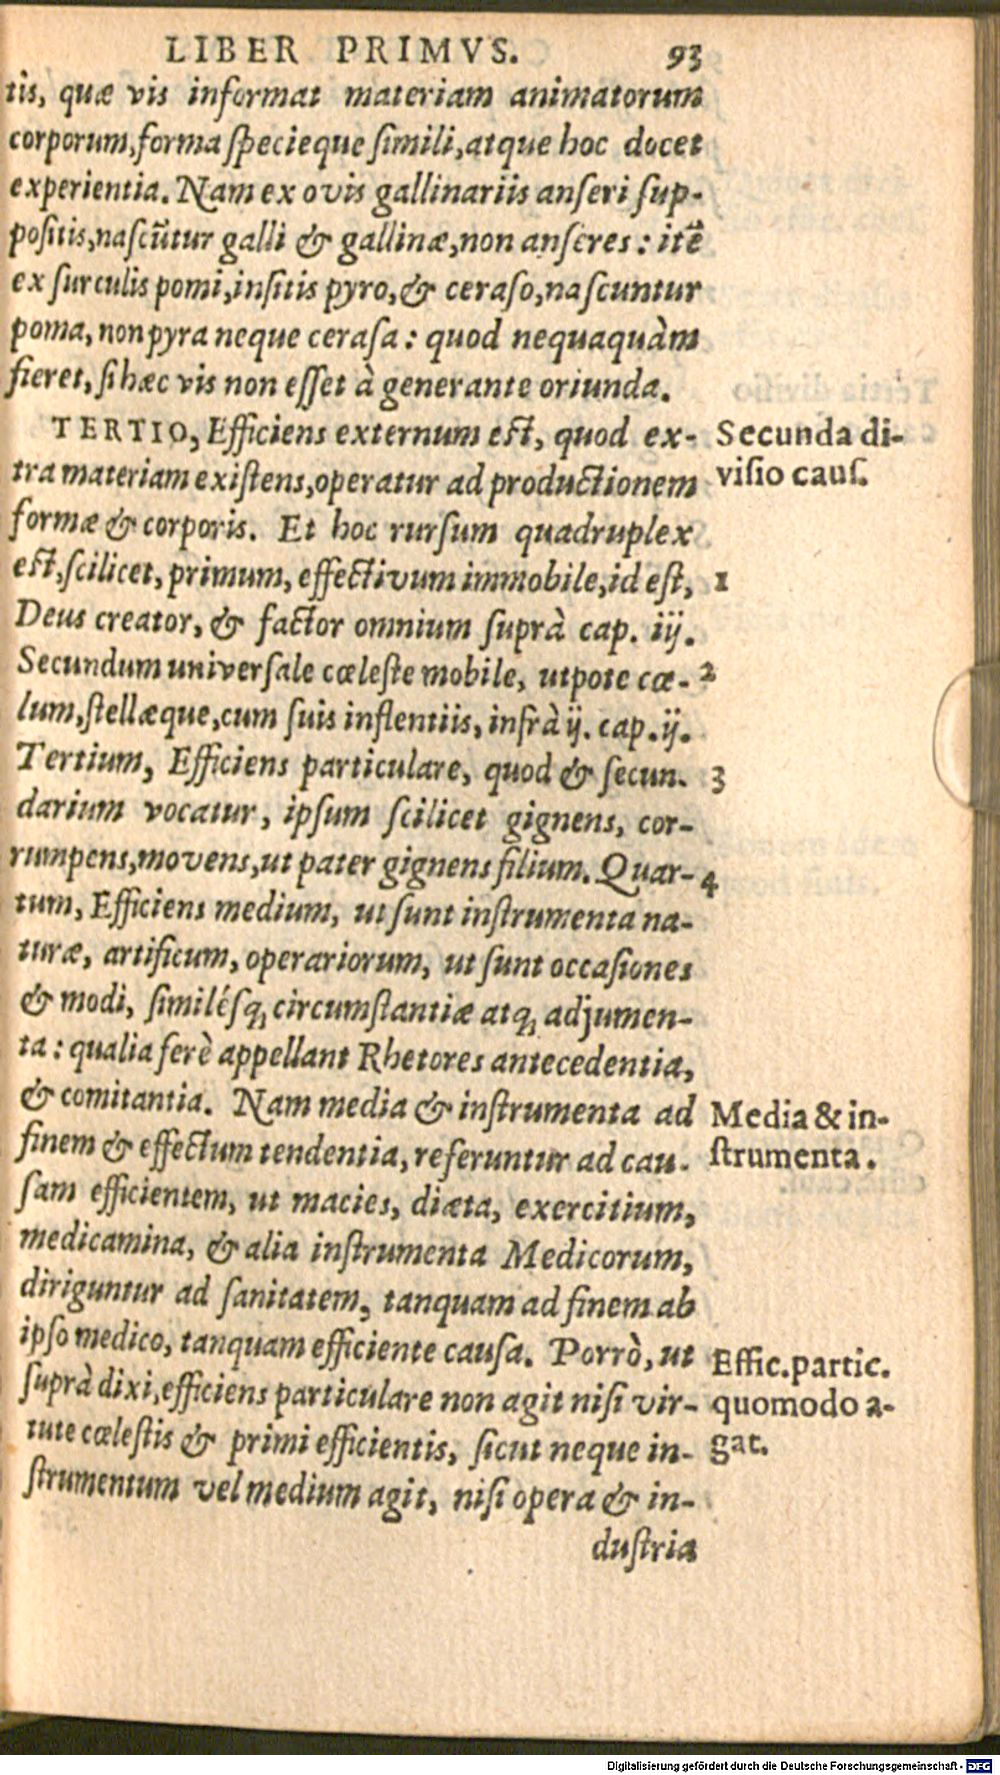 LIBER PRIMVS. 93
tis, quæ vis informat materiam animatorum
corporum, forma ſpecieque ſimili, atque hoc docet
experientia. Nam ex ovis gallinariis anſeri ſup-
poſitis, naſcũtur galli & gallinæ, non anſeres: itẽ
ex ſurculis pomi, inſitis pyro, & ceraſo, naſcuntur
poma, non pyra neque ceraſa: quod nequaquàm
fieret, ſi hæc vis non eſſet à generante oriunda.
TERTIO, Efficiens externum eſt, quod ex-
tra materiam exiſtens, operatur ad productionem
formæ & corporis. Et hoc rurſum quadruplex
eſt, ſcilicet, primum, effectivum immobile, id eſt,
Deus creator, & factor omnium ſuprà cap. iij.
Secundum univerſale cæleſte mobile, utpote cæ-
lum, ſtellæque, cum ſuis inflentiis, infrà ij. cap. ij.
Tertium, Efficiens particulare, quod & ſecun-
darium vocatur, ipſum ſcilicet gignens, cor-
rumpens, movens, ut pater gignens filium. Quar-
tum, Efficiens medium, ut ſunt inſtrumenta na-
turæ, artificum, operariorum, ut ſunt occaſiones
& modi, ſimiléſq; circumſtantiæ atq; adjumen-
ta: qualia ferè appellant Rhetores antecedentia,
& comitantia. Nam media & inſtrumenta ad
finem & effectum tendentia, referuntur ad cau-
ſam efficientem, ut macies, diæta, exercitium,
medicamina, & alia inſtrumenta Medicorum,
diriguntur ad ſanitatem, tanquam ad finem ab
ipſo medico, tanquam efficiente cauſa. Porrò, ut
ſuprà dixi, efficiens particulare non agit niſi vir-
tute cæleſtis & primi efficientis, ſicut neque in-
ſtrumentum vel medium agit, niſi opera & in-
duſtria
Secunda di-
viſio cauſ.
1
2
3
4
Media & in-
ſtrumenta.
Effic. partic.
quomodo a-
gat.
Digitalisierung gefördert durch die Deutsche Forschungsgemeinschaft - DFG